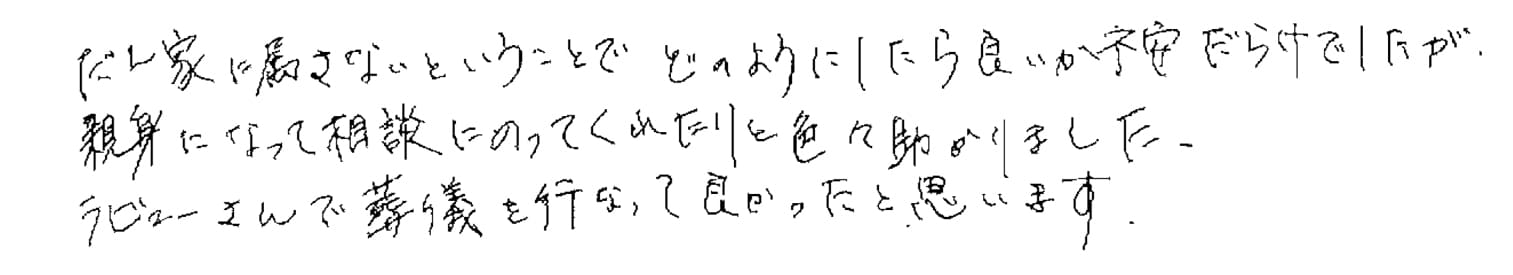 だん家に属さないということでどのようにしたら良いか不安だらけでしたが、
親身になって相談にのってくれたりと色々助かりました。
ラビューさんで葬儀を行なって良かったと思います。